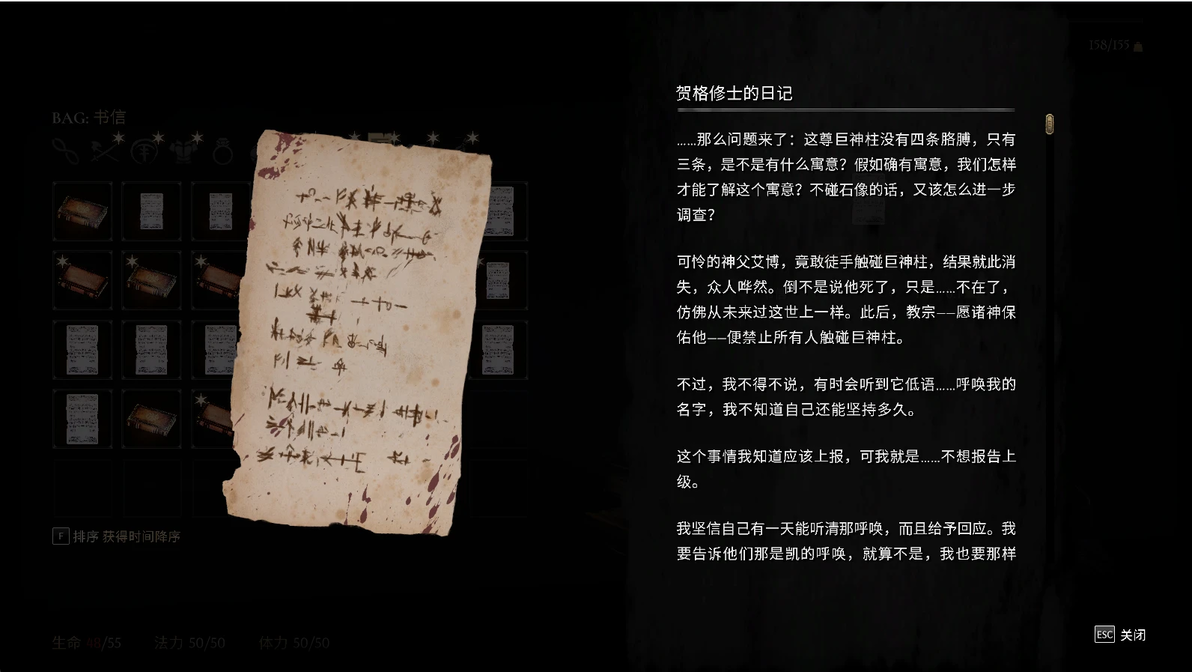 158/155
BAG: 书信
贺格修士的日记
……那么问题来了：这尊巨神柱没有四条胳膊，只有
三条，是不是有什么寓意？假如确有寓意，我们怎样
才能了解这个寓意？不碰石像的话，又该怎么进一步
调查？
可怜的神父艾博，竟敢徒手触碰巨神柱，结果就此消
失，众人哗然。倒不是说他死了，只是……不在了，
仿佛从未来过这世上一样。此后，教宗——愿诸神保
佑他——便禁止所有人触碰巨神柱。
不过，我不得不说，有时会听到它低语……呼唤我的
名字，我不知道自己还能坚持多久。
这个事情我知道应该上报，可我就是……不想报告上
级。
我坚信自己有一天能听清那呼唤，而且给予回应。我
要告诉他们那是凯的呼唤，就算不是，我也要那样
F 排序 获得时间降序
生命 48/55 法力 50/50 体力 50/50
ESC 关闭